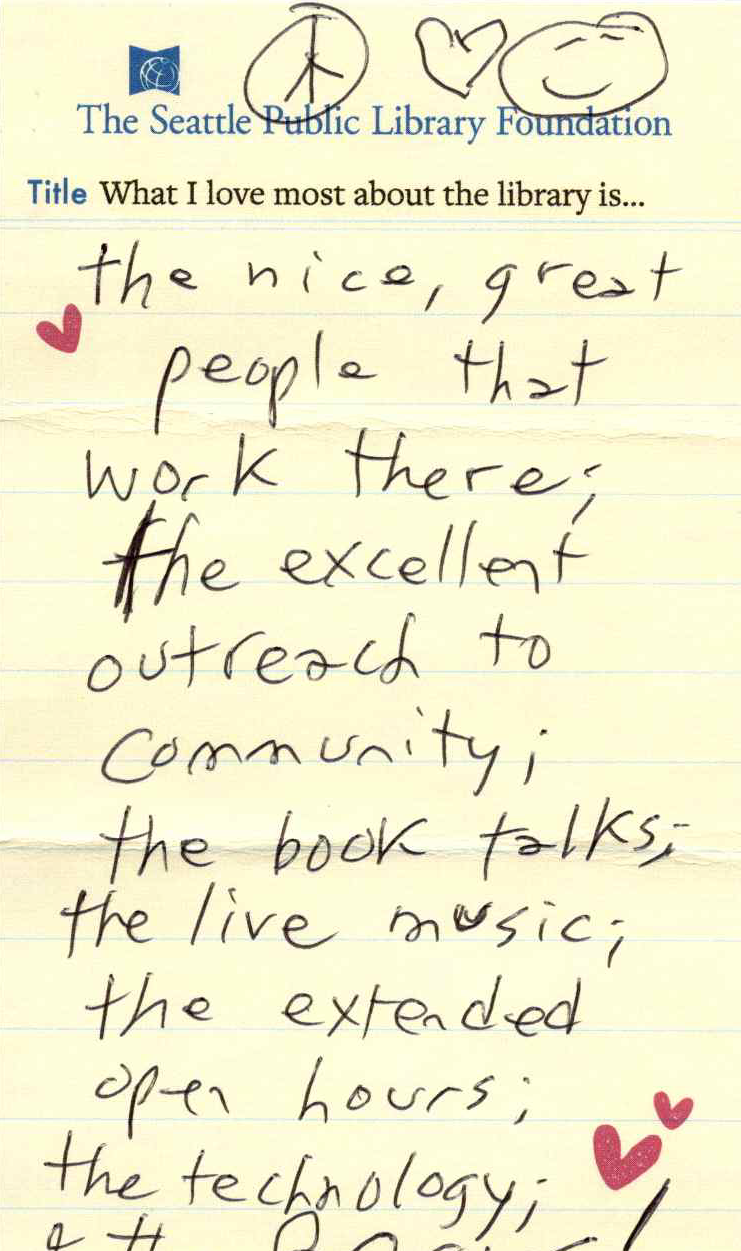 The Seattle Public Library Foundation
Title What I love most about the library is...
the nice, great
people that
work there;
the excellent
outreach to
community;
the book talks;
the live music;
the extended
open hours;
the technology;